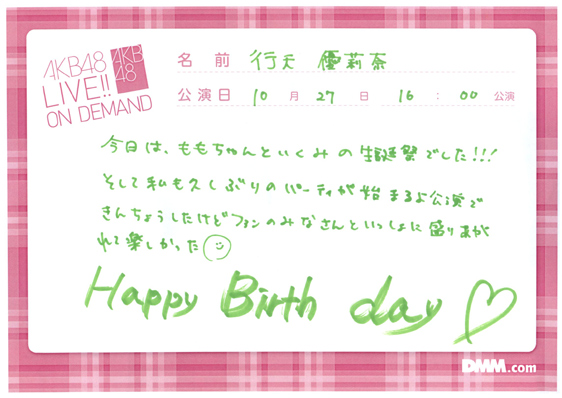 AKB48
LIVE!!
ON DEMAND
AKB
48
名前 行天 優莉奈
公演日 10月27日 16:00公演
今日は、ももちゃんといくみの生誕祭でした!!!
そして私も久しぶりのパーティが始まるよ公演で
きんちょうしたけどファンのみなさんといっしょに盛りあが
れて楽しかった
Happy Birth day
DMM.com